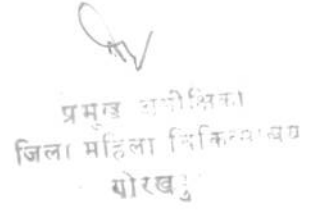 प्रमुख अधीक्षिका
जिला महिला चिकित्सालय
गोरखपु